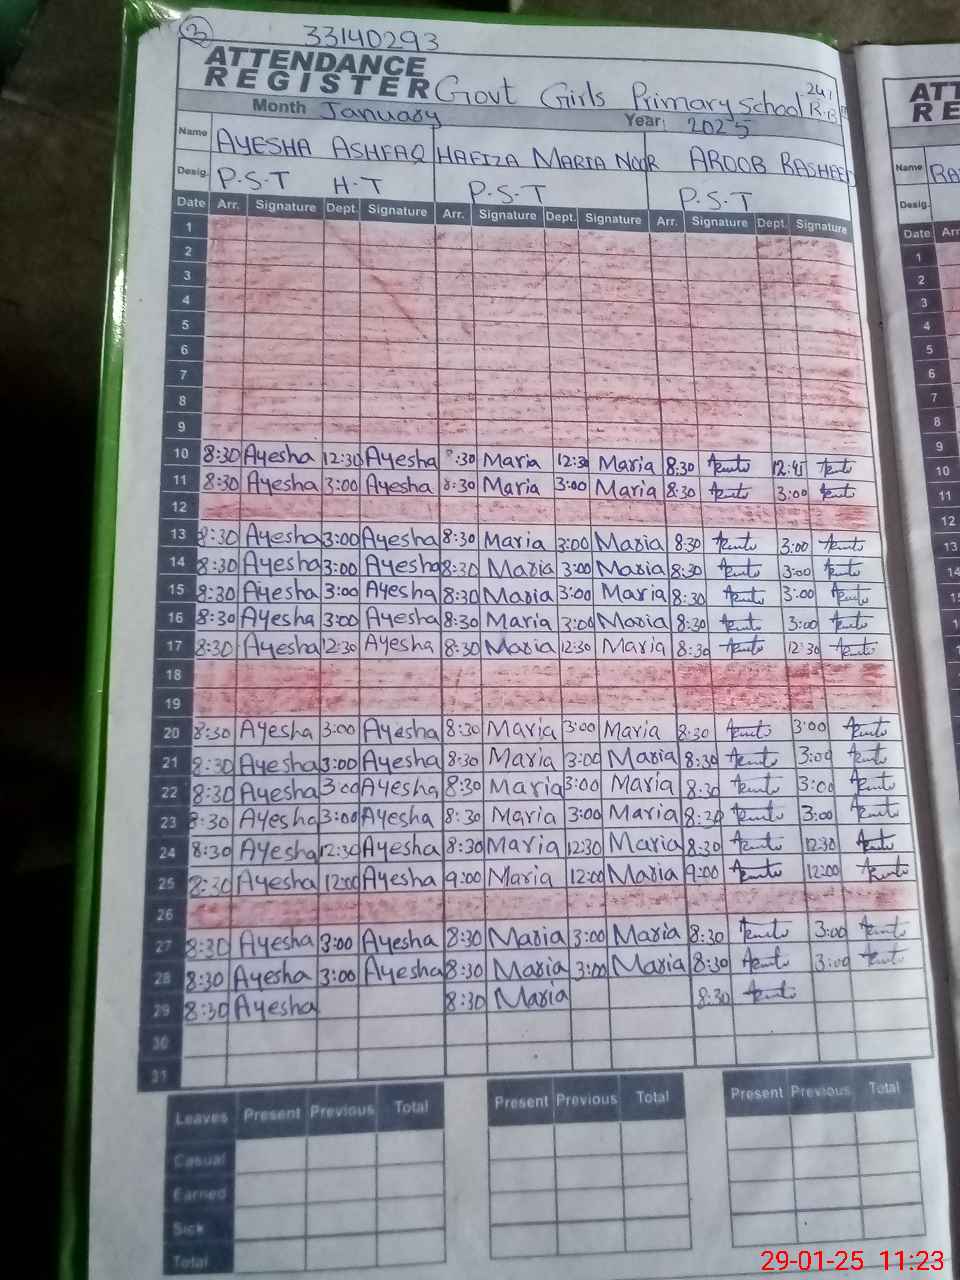 3
33140293
ATTENDANCE
REGISTER Govt Girls Primary School 241 R.B
Month January Year: 2025
Name AYESHA ASHFAQ HAFIZA MARIA NOOR AROOB RASHEED
Desig. P.S.T H.T P.S.T P.S.T
Date Arr. Signature Dept. Signature Arr. Signature Dept. Signature Arr. Signature Dept. Signature
1
2
3
4
5
6
7
8
9
10 8:30 Ayesha 12:30 Ayesha :30 Maria 12:30 Maria 8:30 12:45
11 8:30 Ayesha 3:00 Ayesha 8:30 Maria 3:00 Maria 8:30 3:00
12
13 8:30 Ayesha 3:00 Ayesha 8:30 Maria 3:00 Maria 8:30 3:00
14 8:30 Ayesha 3:00 Ayesha 8:30 Maria 3:00 Maria 8:30 3:00
15 8:30 Ayesha 3:00 Ayesha 8:30 Maria 3:00 Maria 8:30 3:00
16 8:30 Ayesha 3:00 Ayesha 8:30 Maria 3:00 Maria 8:30 3:00
17 8:30 Ayesha 12:30 Ayesha 8:30 Maria 12:30 Maria 8:30 12:30
18
19
20 8:30 Ayesha 3:00 Ayesha 8:30 Maria 3:00 Maria 8:30 3:00
21 8:30 Ayesha 3:00 Ayesha 8:30 Maria 3:00 Maria 8:30 3:00
22 8:30 Ayesha 3:00 Ayesha 8:30 Maria 3:00 Maria 8:30 3:00
23 8:30 Ayesha 3:00 Ayesha 8:30 Maria 3:00 Maria 8:30 3:00
24 8:30 Ayesha 12:30 Ayesha 8:30 Maria 12:30 Maria 8:30 12:30
25 8:30 Ayesha 12:00 Ayesha 9:00 Maria 12:00 Maria 9:00 12:00
26
27 8:30 Ayesha 3:00 Ayesha 8:30 Maria 3:00 Maria 8:30 3:00
28 8:30 Ayesha 3:00 Ayesha 8:30 Maria 3:00 Maria 8:30 3:00
29 8:30 Ayesha 8:30 Maria 8:30
30
31
Leaves Present Previous Total Present Previous Total Present Previous Total
Casual
Earned
Sick
Total
ATT
RE
Name RA
Desig.
Date Arr
1
2
3
4
5
6
7
8
9
10
11
12
13
14
29-01-25 11:23